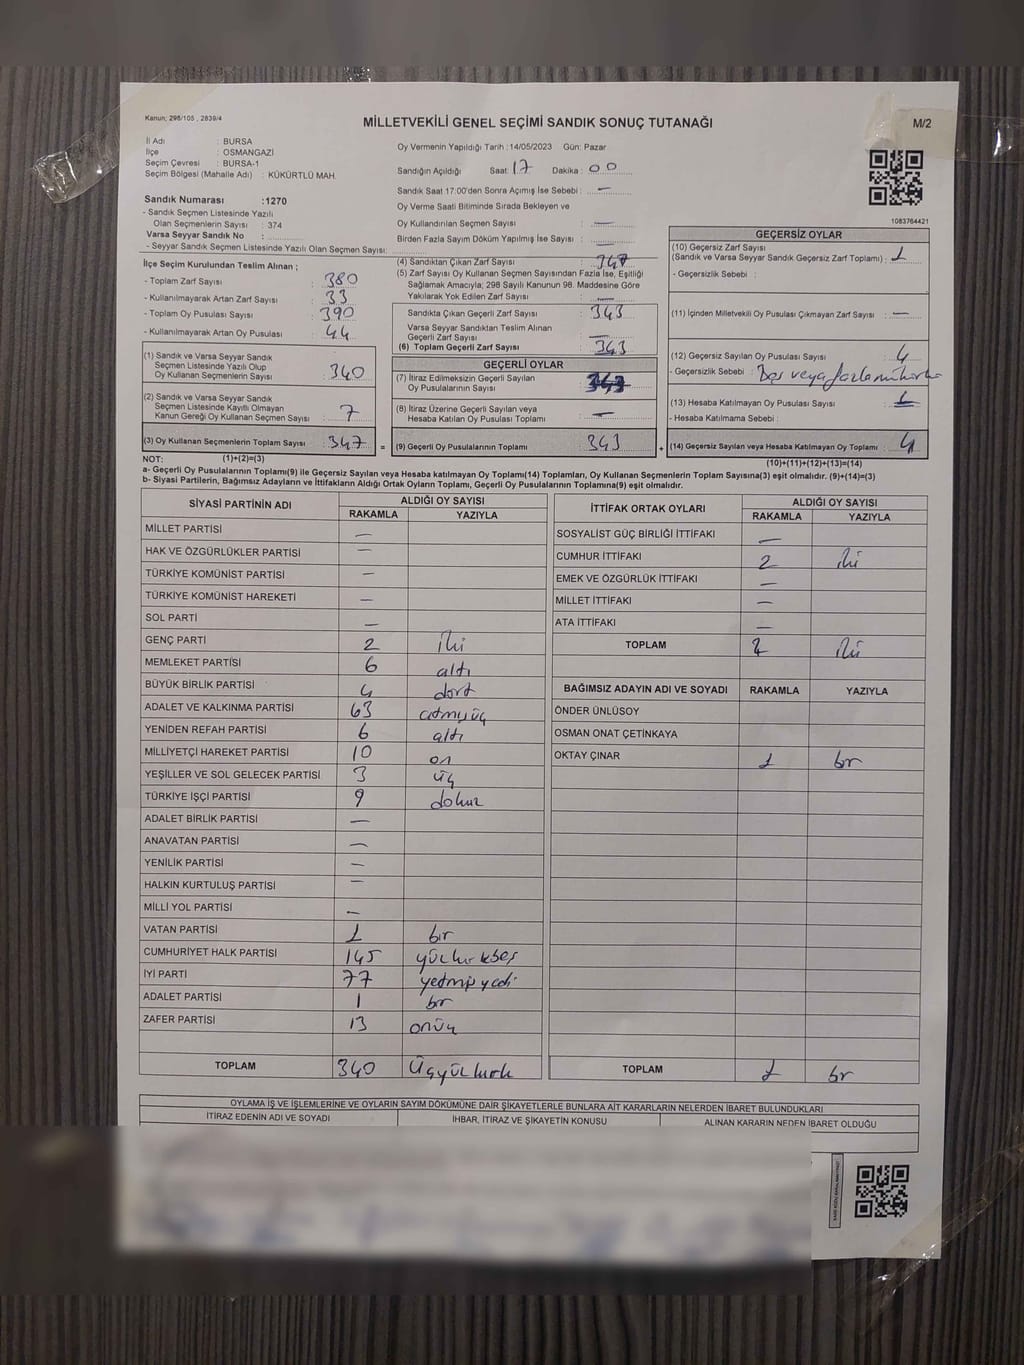 Kanun; 298/105 , 2839/4
MİLLETVEKİLİ GENEL SEÇİMİ SANDIK SONUÇ TUTANAĞI
M/2
İl Adı : BURSA
İlçe : OSMANGAZİ
Seçim Çevresi : BURSA-1
Seçim Bölgesi (Mahalle Adı) : KÜKÜRTLÜ MAH.
Sandık Numarası :1270
- Sandık Seçmen Listesinde Yazılı
Olan Seçmenlerin Sayısı : 374
Varsa Seyyar Sandık No :
- Seyyar Sandık Seçmen Listesinde Yazılı Olan Seçmen Sayısı:
Oy Vermenin Yapıldığı Tarih :14/05/2023 Gün: Pazar
Sandığın Açıldığı Saat: 17 Dakika : 00
Sandık Saat 17:00'den Sonra Açımış İse Sebebi : —
Oy Verme Saati Bitiminde Sırada Bekleyen ve
Oy Kullandırılan Seçmen Sayısı : —
Birden Fazla Sayım Döküm Yapılmış İse Sayısı : —
1083764421
İlçe Seçim Kurulundan Teslim Alınan ;
- Toplam Zarf Sayısı : 380
- Kullanılmayarak Artan Zarf Sayısı : 33
- Toplam Oy Pusulası Sayısı : 390
- Kullanılmayarak Artan Oy Pusulası : 44
(1) Sandık ve Varsa Seyyar Sandık
Seçmen Listesinde Yazılı Olup
Oy Kullanan Seçmenlerin Sayısı : 340
(2) Sandık ve Varsa Seyyar Sandık
Seçmen Listesinde Kayıtlı Olmayan
Kanun Gereği Oy Kullanan Seçmen Sayısı : 7
(3) Oy Kullanan Seçmenlerin Toplam Sayısı : 347 =
(4) Sandıktan Çıkan Zarf Sayısı : 347
(5) Zarf Sayısı Oy Kullanan Seçmen Sayısından Fazla İse, Eşitliği
Sağlamak Amacıyla; 298 Sayılı Kanunun 98. Maddesine Göre
Yakılarak Yok Edilen Zarf Sayısı : —
Sandıkta Çıkan Geçerli Zarf Sayısı : 343
Varsa Seyyar Sandıktan Teslim Alınan
Geçerli Zarf Sayısı : —
(6) Toplam Geçerli Zarf Sayısı : 343
GEÇERLİ OYLAR
(7) İtiraz Edilmeksizin Geçerli Sayılan
Oy Pusulalarının Sayısı : 343
(8) İtiraz Üzerine Geçerli Sayılan veya
Hesaba Katılan Oy Pusulası Toplamı : —
(9) Geçerli Oy Pusulalarının Toplamı : 343 +
GEÇERSİZ OYLAR
(10) Geçersiz Zarf Sayısı
(Sandık ve Varsa Seyyar Sandık Geçersiz Zarf Toplamı) : 1
- Geçersizlik Sebebi :
(11) İçinden Milletvekili Oy Pusulası Çıkmayan Zarf Sayısı : —
(12) Geçersiz Sayılan Oy Pusulası Sayısı : 4
- Geçersizlik Sebebi : Boş veya fazla mühür
(13) Hesaba Katılmayan Oy Pusulası Sayısı :
- Hesaba Katılmama Sebebi :
(14) Geçersiz Sayılan veya Hesaba Katılmayan Oy Toplamı : 4
NOT: (1)+(2)=(3)
(10)+(11)+(12)+(13)=(14)
a- Geçerli Oy Pusulalarının Toplamı(9) ile Geçersiz Sayılan veya Hesaba katılmayan Oy Toplamı(14) Toplamları, Oy Kullanan Seçmenlerin Toplam Sayısına(3) eşit olmalıdır. (9)+(14)=(3)
b- Siyasi Partilerin, Bağımsız Adayların ve İttifakların Aldığı Ortak Oyların Toplamı, Geçerli Oy Pusulalarının Toplamına(9) eşit olmalıdır.
SİYASİ PARTİNİN ADI ALDIĞI OY SAYISI
RAKAMLA YAZIYLA
MİLLET PARTİSİ —
HAK VE ÖZGÜRLÜKLER PARTİSİ —
TÜRKİYE KOMÜNİST PARTİSİ —
TÜRKİYE KOMÜNİST HAREKETİ —
SOL PARTİ —
GENÇ PARTİ 2 iki
MEMLEKET PARTİSİ 6 altı
BÜYÜK BİRLİK PARTİSİ 4 dört
ADALET VE KALKINMA PARTİSİ 63 atmışüç
YENİDEN REFAH PARTİSİ 6 altı
MİLLİYETÇİ HAREKET PARTİSİ 10 on
YEŞİLLER VE SOL GELECEK PARTİSİ 3 üç
TÜRKİYE İŞÇİ PARTİSİ 9 dokuz
ADALET BİRLİK PARTİSİ —
ANAVATAN PARTİSİ —
YENİLİK PARTİSİ —
HALKIN KURTULUŞ PARTİSİ —
MİLLİ YOL PARTİSİ —
VATAN PARTİSİ 1 bir
CUMHURİYET HALK PARTİSİ 145 yüzkırkbeş
İYİ PARTİ 77 yetmişyedi
ADALET PARTİSİ 1 bir
ZAFER PARTİSİ 13 onüç
TOPLAM 340 üçyüzkırk
İTTİFAK ORTAK OYLARI ALDIĞI OY SAYISI
RAKAMLA YAZIYLA
SOSYALİST GÜÇ BİRLİĞİ İTTİFAKI —
CUMHUR İTTİFAKI 2 iki
EMEK VE ÖZGÜRLÜK İTTİFAKI —
MİLLET İTTİFAKI —
ATA İTTİFAKI —
TOPLAM 2 iki
BAĞIMSIZ ADAYIN ADI VE SOYADI RAKAMLA YAZIYLA
ÖNDER ÜNLÜSOY
OSMAN ONAT ÇETİNKAYA
OKTAY ÇINAR 1 bir
TOPLAM 1 bir
OYLAMA İŞ VE İŞLEMLERİNE VE OYLARIN SAYIM DÖKÜMÜNE DAİR ŞİKAYETLERLE BUNLARA AİT KARARLARIN NELERDEN İBARET BULUNDUKLARI
İTİRAZ EDENİN ADI VE SOYADI İHBAR, İTİRAZ VE ŞİKAYETİN KONUSU ALINAN KARARIN NEDEN İBARET OLDUĞU